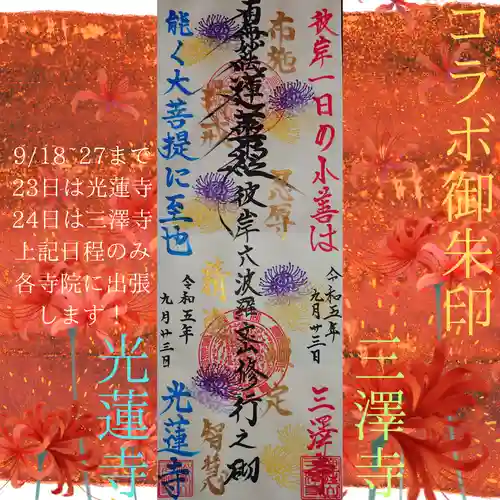 コラボ御朱印
三澤寺
彼岸一日の小善は
令和五年
九月廿三日
三澤寺
布施
忍辱
南無妙法蓮華経
彼岸六波羅蜜修行之砌
智慧
能く大菩提に至也
令和五年
九月廿三日
光蓮寺
9/18~27まで
23日は光蓮寺
24日は三澤寺
上記日程のみ
各寺院に出張
します!
光蓮寺